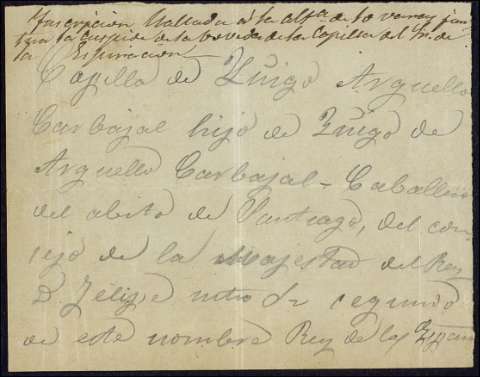 Inscripción hallada á la alt.ª de 10 varas, jun-
to a la cuspide de la boveda de la Capilla del M. de
la Espiración
Capilla de Iñigo Arguello
Carbajal hijo de Iñigo de
Arguello Carbajal - Caballero
del abito de Santiago, del con-
sejo de la Majestad del Rey
D. Felipe ntro Sr segundo
de este nombre Rey de las Españ